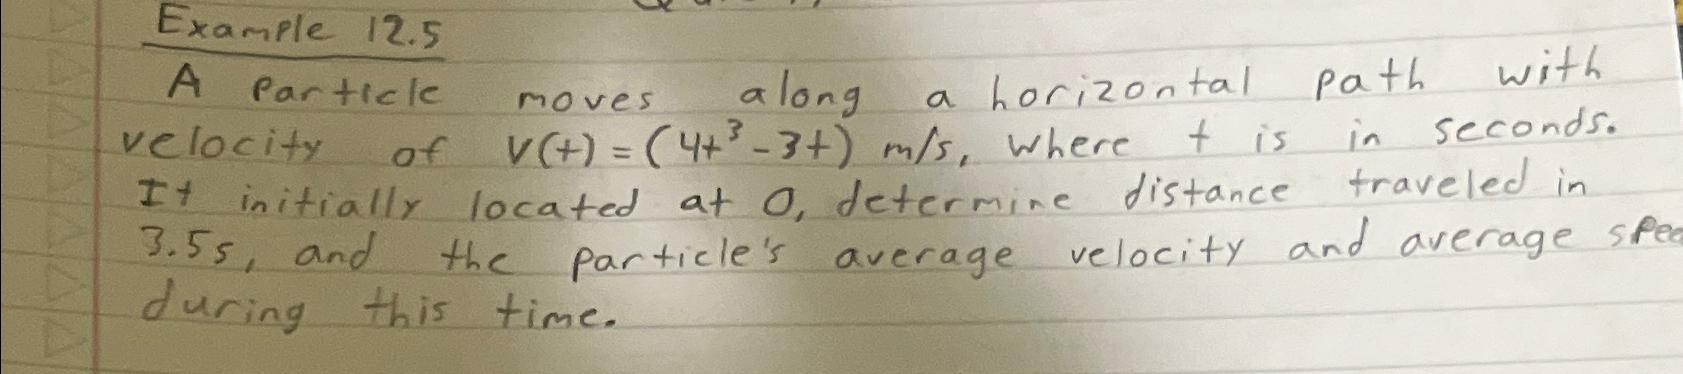 Example 12.5
A Particle moves along a horizontal path with
velocity of V(t) = (4t³ - 3t) m/s, where t is in seconds.
It initially located at O, determine distance traveled in
3.5s, and the particle's average velocity and average spee
during this time.